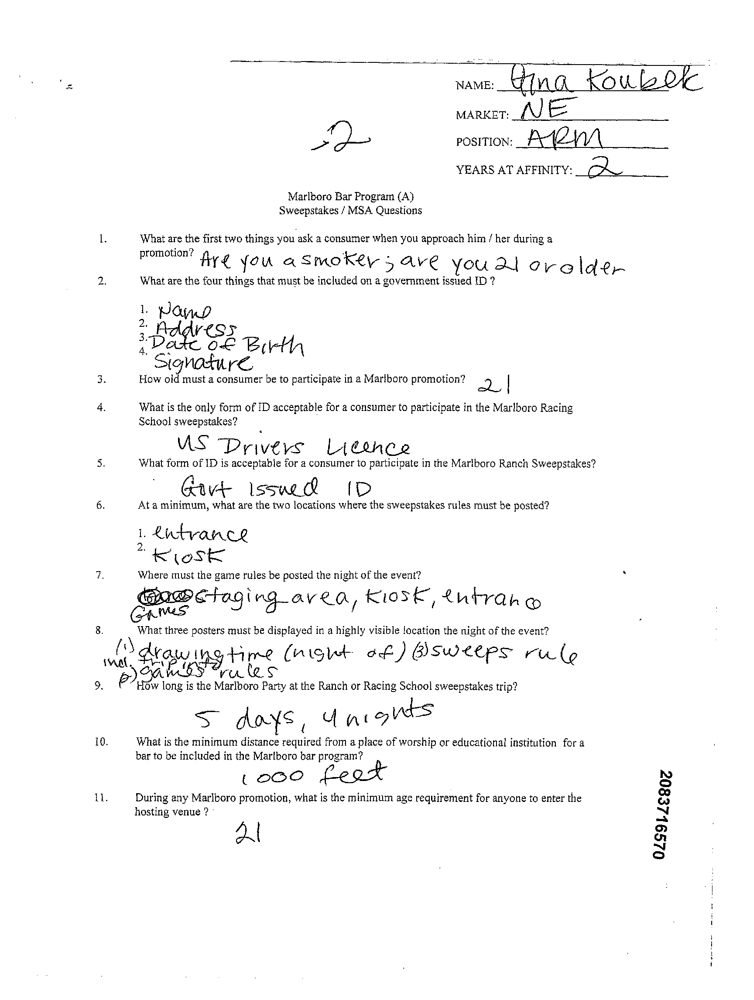 NAME: Gina Koubek
MARKET: NE
-2
POSITION: ARM
YEARS AT AFFINITY: 2
Marlboro Bar Program (A)
Sweepstakes / MSA Questions
1. What are the first two things you ask a consumer when you approach him / her during a
promotion? Are you a smoker; are you 21 or older
2. What are the four things that must be included on a government issued ID ?
1. Name
2. Address
3. Date of Birth
4. Signature
3. How old must a consumer be to participate in a Marlboro promotion? 21
4. What is the only form of ID acceptable for a consumer to participate in the Marlboro Racing
School sweepstakes?
US Drivers Licence
5. What form of ID is acceptable for a consumer to participate in the Marlboro Ranch Sweepstakes?
Govt issued ID
6. At a minimum, what are the two locations where the sweepstakes rules must be posted?
1. entrance
2. Kiosk
7. Where must the game rules be posted the night of the event?
staging area, Kiosk, entrance
Games
8. What three posters must be displayed in a highly visible location the night of the event?
(1) drawing time (night of) (3) sweeps rule
incl. trip
2) games rules
9. How long is the Marlboro Party at the Ranch or Racing School sweepstakes trip?
5 days, 4 nights
10. What is the minimum distance required from a place of worship or educational institution for a
bar to be included in the Marlboro bar program?
1000 feet
11. During any Marlboro promotion, what is the minimum age requirement for anyone to enter the
hosting venue ?
21
2083716570